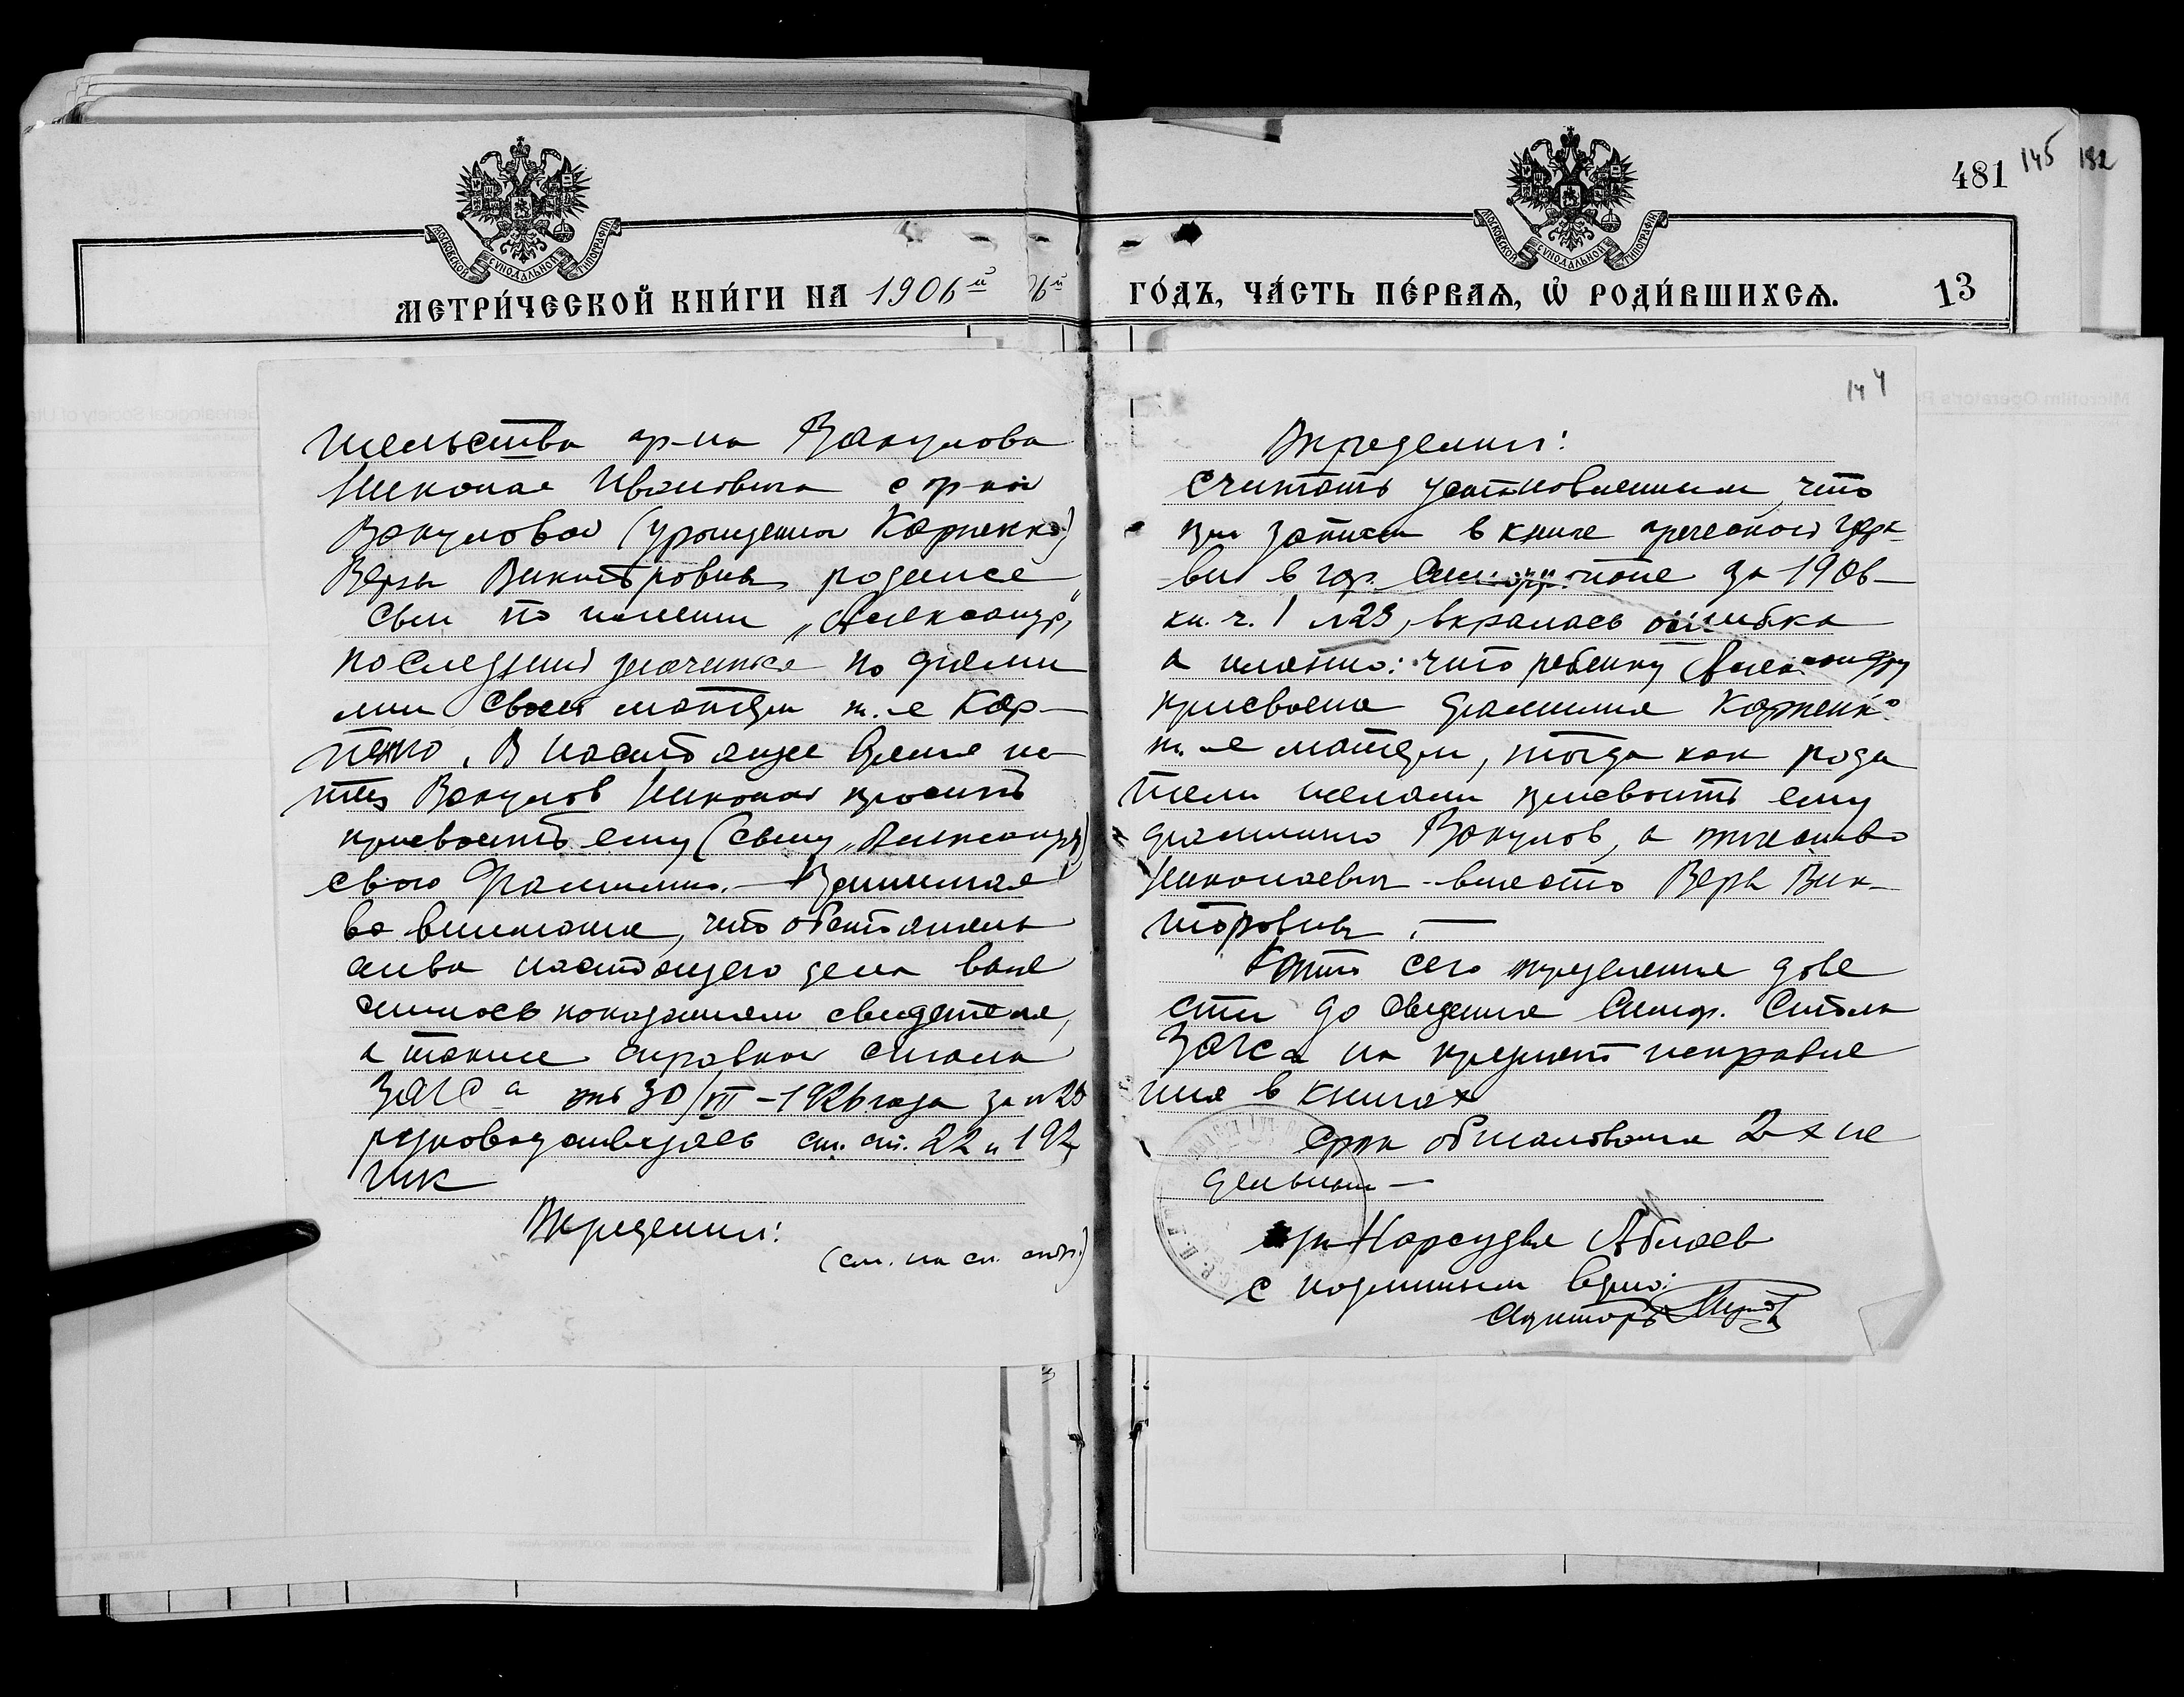 МЕТРИ́ЧЕСКОЙ КНИ́ГИ НА 1906й
6й ГО́ДЪ, ЧА́СТЬ ПЕ́РВАѦ, Ѡ҆ РОДИ́ВШИХСѦ.
МОСКОВСКОЙ СѴНОДАЛЬНОЙ ТИПОГРАФІИ
МОСКОВСКОЙ СѴНОДАЛЬНОЙ ТИПОГРАФІИ
481 145 182
13
тельства гр-на Вакулова
Николая Ивановича с гр-кой
Вакуловой (урожденная Карпенко)
Верой Викторовной родился
сын по имени „Александр"
последний значится по фами
лии своей матери т.-е Кар-
пенко. В настоящее время он
отец Вакулов Николай просит
присвоить ему (сыну „Александру)
свою фамилию. — Принимая
во внимание, что обстоятель
ства настоящего дела выяс
нилось показанием свидетеля,
а также справкой стола
ЗАГСа от 30/VII - 1926 года за № 20
руководствуясь ст. ст. 22 и 192
ГПК
Определил:
(см. на сл. стр.)
144
Определил:
Считать установленным, что
при записи в книге греческой церк
ви в гор. Симферополе за 1906
кн. ч. 1 №23, вкралась ошибка
а именно: что ребенку Александру
присвоена фамилия Карпенко
т.-е матери, тогда как роди
тели желали присвоить ему
фамилию Вакулов, а отчество
Николаевич - вместо Веры Вик-
торовны. —
Копию сего определения дове
сти до сведения Симф. Стола
ЗАГСа на предмет исправле
ния в книгах
Срок обжалования 2-х не
дельный —
п/п Нарсудья Аблаев
С подлинным верно: